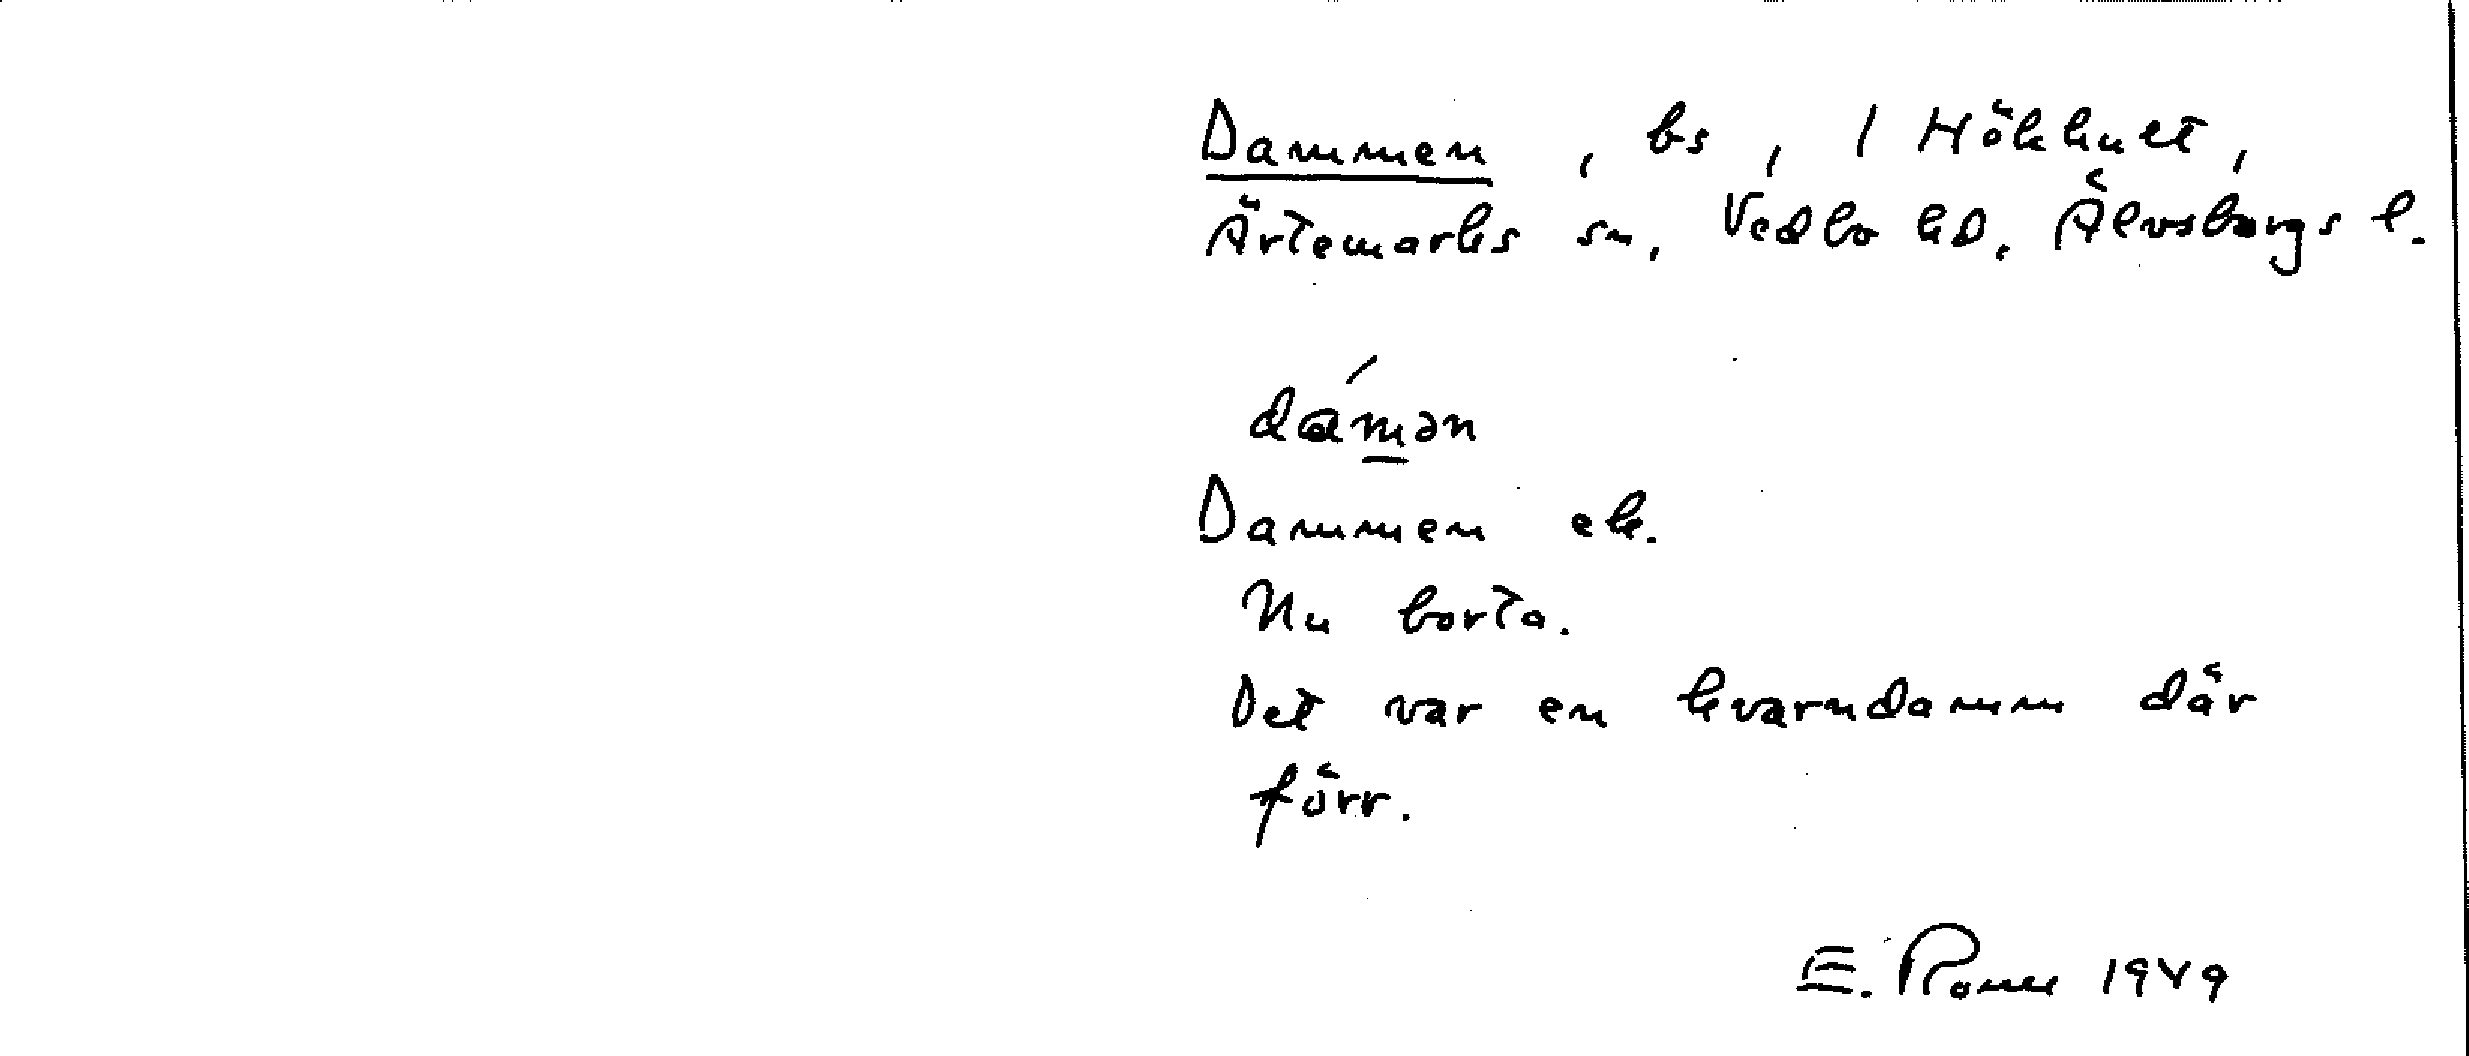 Dammen, bs, 1 Hökhult,
Ärtemarks sn, Vedbo hd, Älvsborgs l.
dámən
Dammen ek.
Nu borta.
Det var en kvarndamm där
förr.
E. 1949